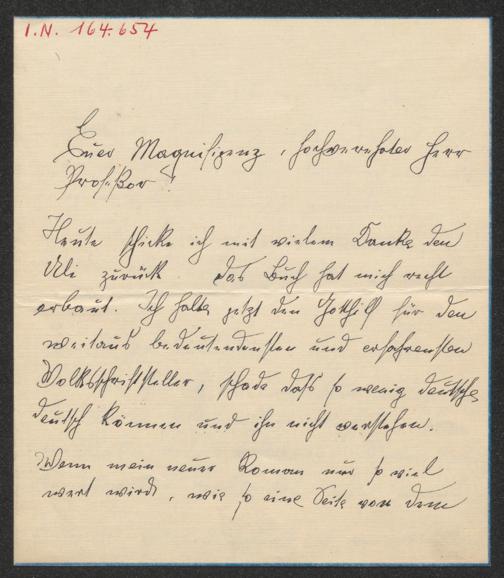 I.N. 164.654
Euer Magnifizenz, hochverehrter Herr
Professor!
Heute schicke ich mit vielem Danke den
Uli zurück. Das Buch hat mich recht
erbaut. Ich halte jetzt den Gotthelf für den
weitaus bedeutendsten und erfahrensten
Volksschriftsteller, schade dass so wenig Deutsche
deutsch können und ihn nicht verstehen.
Wenn mein neuer Roman nur so viel
wert wird, wie so eine Seite von dem